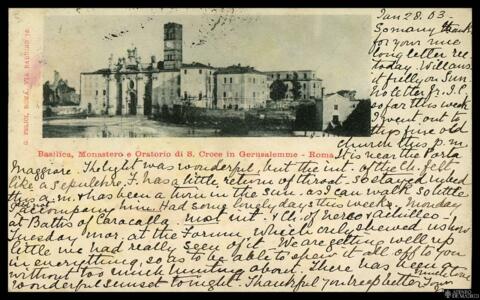 Jan 28. 03.
So many thanks
for your nice
long letter re
today. Will ans.
it fully on Sun.
No letter fr. J.C.
so far this week
I went out to
this fine old
church this p.m
It is near the Porta
G. FELICI, ROMA, VIA BABUINO 16.
Basilica, Monastero e Oratorio di S. Croce in Gerusalemme - Roma
Maggiore. The light was wonderful, but the int. of the ch. felt
like a sepulchre. F. has a little return of throat. So stayed in bed
this a.m. & has been a turn in the sun, as I can walk so little
I accompany him. Had some lovely days this week. Monday
at Baths of Caracalla - not int. & Ch. of Nereo & Achilleo -
Tuesday mor. at the Forum which only shewed us how
little we had really seen of it - We are getting well up
in everything, so as to be able to shew it all off to you
without too much hunting about. There has been a
wonderful sunset to-night. Thankful you keep better